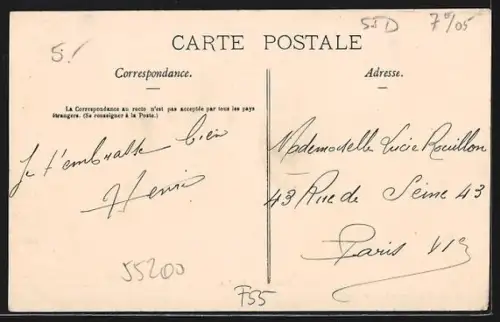 5.!
55D
7⁰/05
CARTE POSTALE
Correspondance.
Adresse.
La Correspondance au recto n'est pas acceptée par tous les pays
étrangers. (Se renseigner à la Poste.)
Je t'embrasse bien
Henri
Mademoiselle Lucie Rouillon
43 Rue de Seine 43
Paris VIe
55200
F55